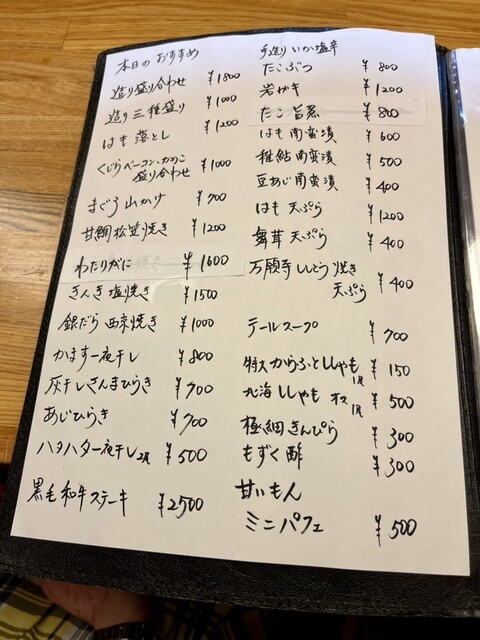 本日のおすすめ
造り盛り合わせ ¥1800
造り三種盛り ¥1000
はも落とし ¥1200
くじらベーコン・かのこ
盛り合わせ ¥1000
まぐろ山かけ ¥700
甘鯛松笠焼き ¥1200
わたりがに ¥1600
きんき塩焼き ¥1500
銀だら西京焼き ¥1000
かます一夜干し ¥800
灰干しさんまひらき ¥700
あじひらき ¥700
ハタハタ一夜干し2尾 ¥500
黒毛和牛ステーキ ¥2500
手造りいか塩辛
たこぶつ ¥800
岩ガキ ¥1200
たこ旨煮 ¥800
はも南蛮漬 ¥600
稚鮎南蛮漬 ¥500
豆あじ南蛮漬 ¥400
はも天ぷら ¥1200
舞茸天ぷら ¥400
万願寺ししとう焼き
天ぷら ¥400
テールスープ ¥700
特大からふとししゃも1尾 ¥150
北海ししゃもオス1尾 ¥500
極細きんぴら ¥300
もずく酢 ¥300
甘いもん
ミニパフェ ¥500